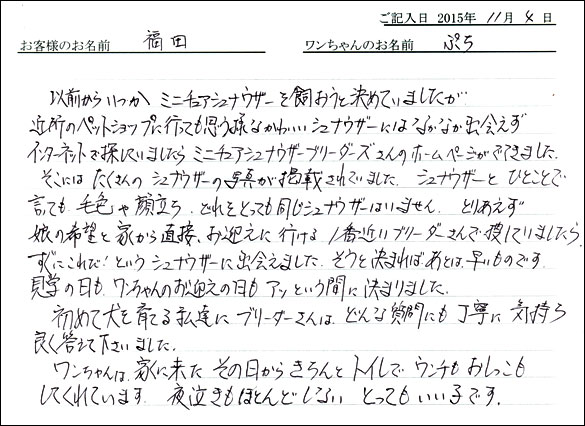 ご記入日 2015年 11月 4日
お客様のお名前 福田 ワンちゃんのお名前 ぷち
以前からいつか ミニチュアシュナウザーを飼おうと決めていましたが
近所のペットショップに行っても思う様なかわいいシュナウザーにはなかなか出会えず
インターネットで探していましたら ミニチュアシュナウザーブリーダーズさんのホームページがでてきました。
そこには たくさんの シュナウザーの写真が掲載されていました。 シュナウザーと ひとことで
言っても 毛色や顔立ち、どれをとっても同じシュナウザーはいません。 とりあえず
娘の希望と家から直接、お迎えに行ける 1番近いブリーダーさんで捜していましたら
すぐにこれだ!という シュナウザーに出会えました。そうと決まればあとは、早いものです。
見学の日も、ワンちゃんのお迎えの日も アッという間に決まりました。
初めて犬を育てる私達に ブリーダーさんは、どんな質問にも丁寧に 気持ち
良く答えて下さいました。
ワンちゃんは、家に来た その日から きちんと トイレで ウンチも おしっこも
してくれています。 夜泣きもほとんどしない とってもいい子です。